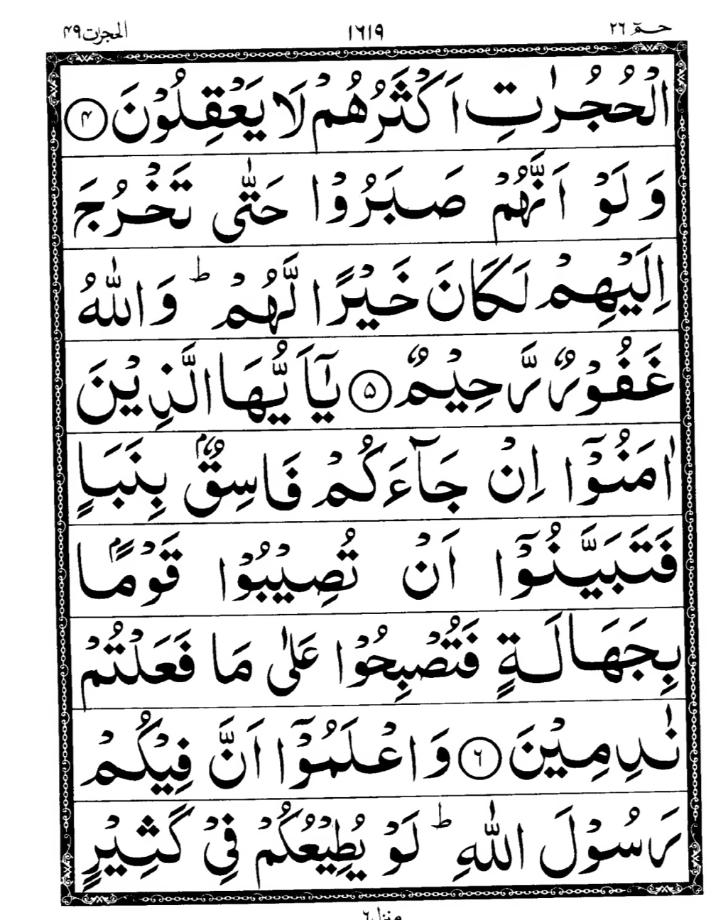 حٰمٓ ٢٦
١٦١٩
الحجرٰت ٤٩
الْحُجُرٰتِ اَكْثَرُهُمْ لَا يَعْقِلُوْنَ ④
وَلَوْ اَنَّهُمْ صَبَرُوْا حَتّٰى تَخْرُجَ
اِلَيْهِمْ لَكَانَ خَيْرًا لَّهُمْ ؕ وَاللّٰهُ
غَفُوْرٌ رَّحِيْمٌ ⑤ يٰۤاَيُّهَا الَّذِيْنَ
اٰمَنُوْۤا اِنْ جَآءَكُمْ فَاسِقٌۢ بِنَبَاٍ
فَتَبَيَّنُوْۤا اَنْ تُصِيْبُوْا قَوْمًۢا
بِجَهَالَةٍ فَتُصْبِحُوْا عَلٰى مَا فَعَلْتُمْ
نٰدِمِيْنَ ⑥ وَاعْلَمُوْۤا اَنَّ فِيْكُمْ
رَسُوْلَ اللّٰهِ ؕ لَوْ يُطِيْعُكُمْ فِيْ كَثِيْرٍ
منزل ٦